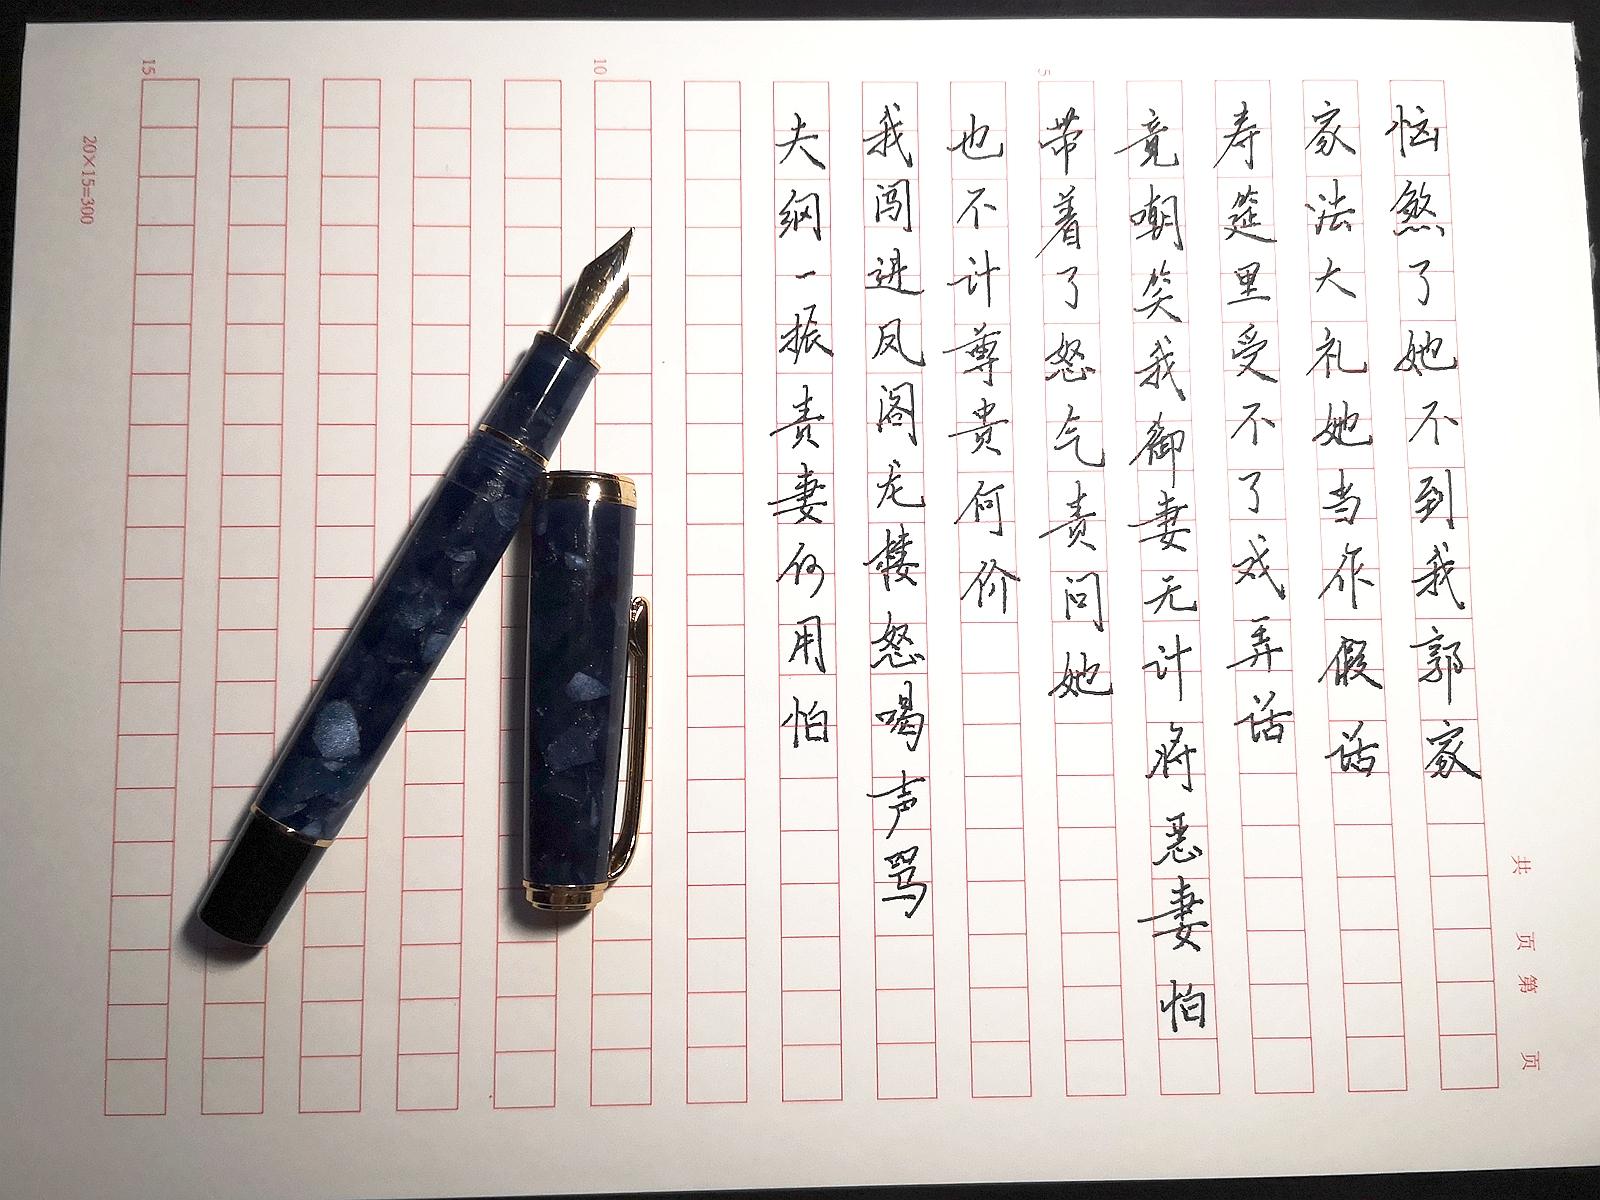 恼煞了她不到我郭家
家法大礼她当作假话
寿筵里受不了戏弄话
竟嘲笑我御妻无计将恶妻怕
带着了怒气责问她
也不计尊贵何价
我闯进凤阁龙楼怒喝声骂
夫纲一振责妻何用怕
共 页 第 页
5
10
15
20×15=300